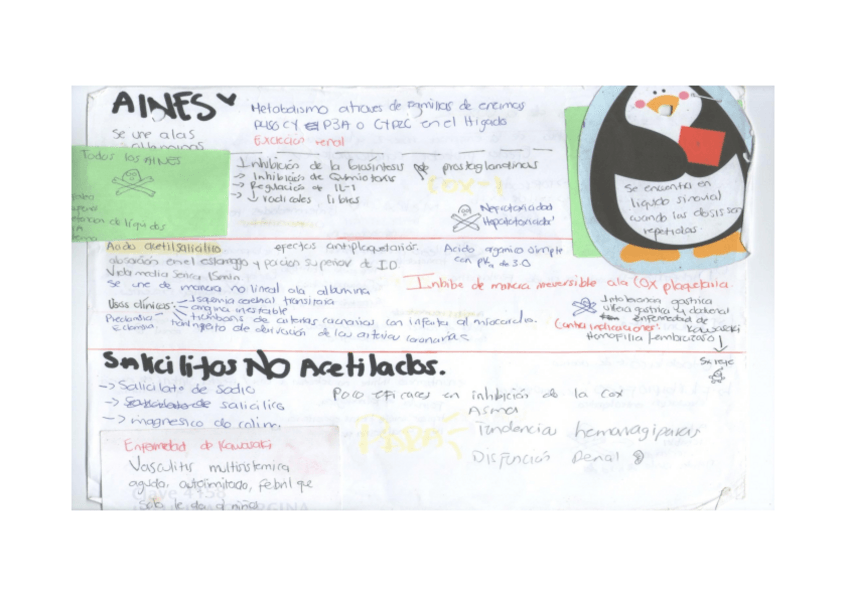 AINES
Se une a las
Metabolismo atraves de familias de enzimas
P3A o CYP2C en el Higado
Excrecion renal
Todos los AINES
de líquidos
Inhibición de la biosintesis de prostaglandinas
→ Inhibición de Quimiotaxis
→ Regulación de IL-1
→ ↓ radicales libres
COX-1
Nefrotoxicidad
Hepatotoxicidad
Se encuentra en
liquido sinovial
cuando las dosis son
repetidas.
Acido acetilsalicilico
efectos antiplaquetarios.
Acido organico simple
con pKa de 3.0
absorción en el estomago y porcion superior de I.D
Vida media serica 15min
Se une de manera no lineal a la albumina
Inhibe de manera irreversible a la COX plaquetaria.
Usos clínicos:
Isquemia cerebral transitoria
angina inestable
trombosis de arterias coronarias con infarto al miocardio.
de derivación de las arterias coronarias
Preclamsia
Eclamsia
Intolerancia gastrica
Ulcera gastrica y duodenal
enfermedad de
Kawasaki
Contraindicaciones:
Hemofilia, embarazo
Sx reye
Salicilatos NO Acetilados.
→ Salicilato de Sodio
→ salicilico
→ magnesico de colina.
Poco eficaces en inhibición de la COX
Asma
Tendencia hemorragiparas
Disfunción Renal
Enfermedad de Kawasaki
Vasculitis multisistemica
aguda, autolimitado, febril que
Solo le da a niños